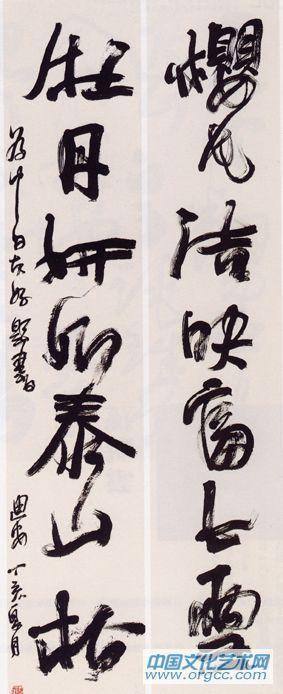 櫻花洁映富士雪
牡丹妍泰山松
為中日友好題書
迪安 丁亥夏月
中国文化艺术网
www.orgcc.com